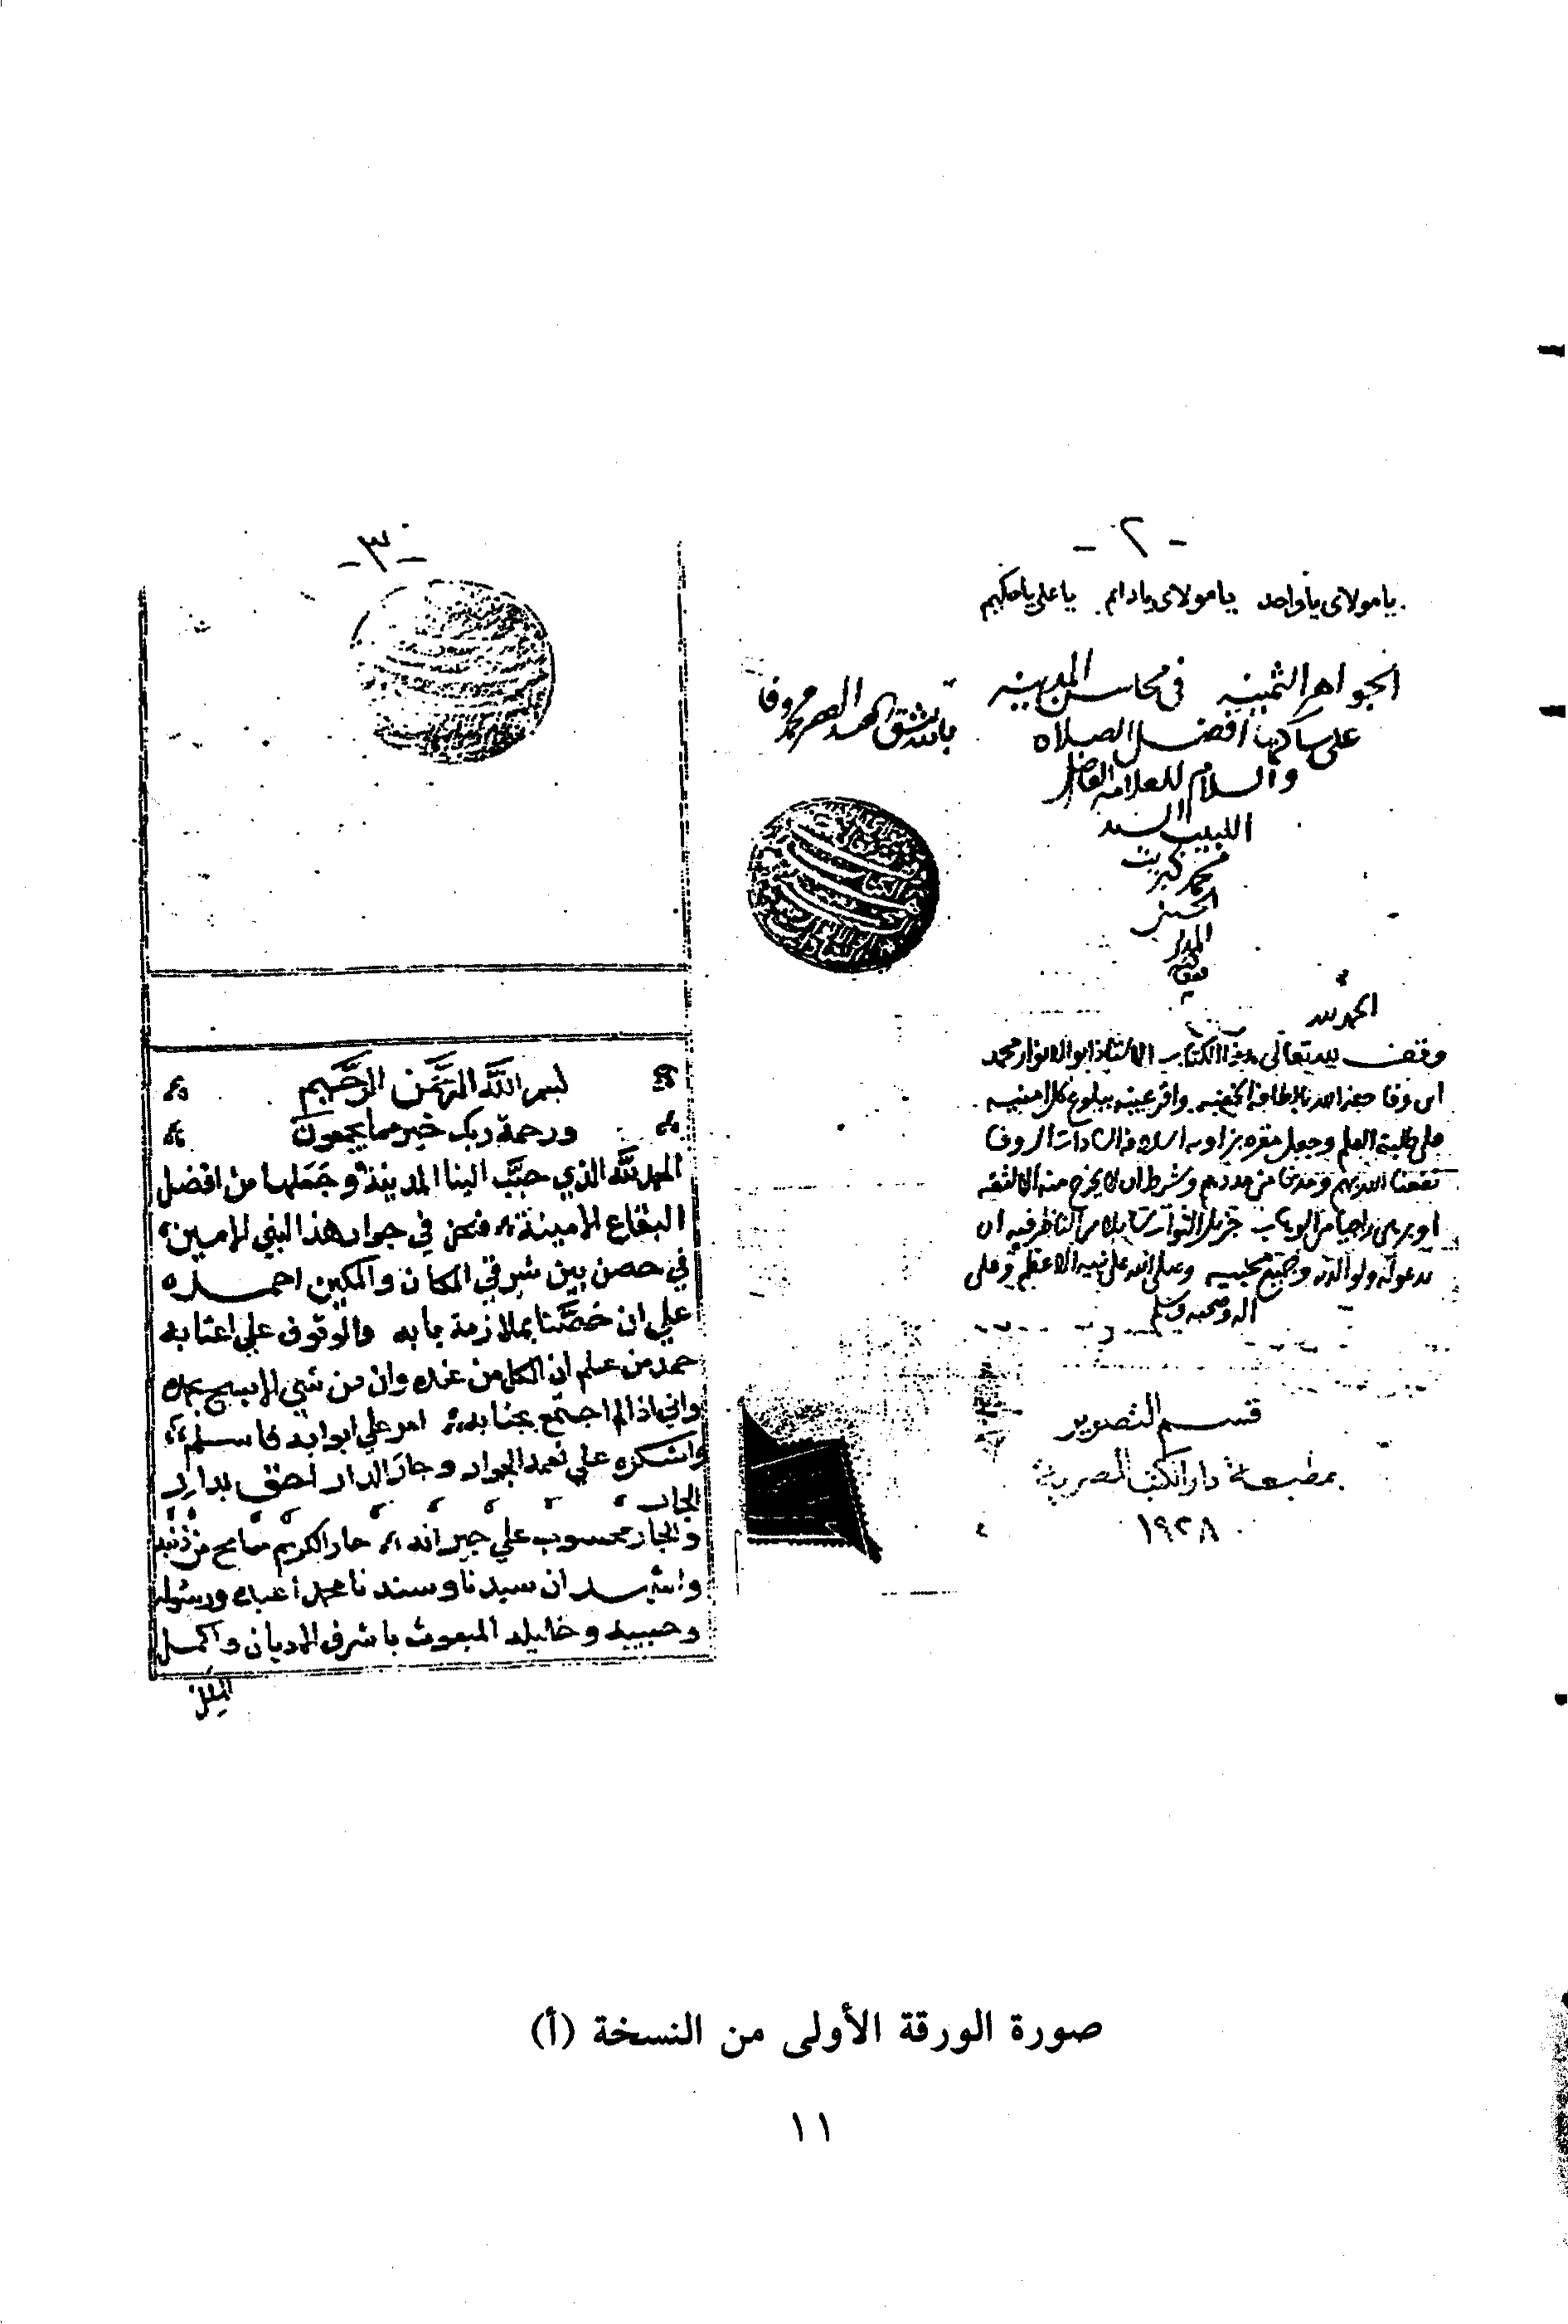 - ٢ -
يا مولاى يا واحد يا مولاى يا دايم يا على يا حكيم
الجواهر الثمينه فى محاسن المدينه
على ساكنها أفضل الصلاه
والسلام للعلامه الفاضل
اللبيب السيد
محمد كبريت
الحسينى
المدنى
الحمد لله
وقف لله تعالى هذا الكتاب الاستاذ ابو الانوار محمد
ابن وفا حفه الله بالطافه الخفيه واقر عينه ببلوغ كل امنيه
على طلبة العلم وجعل مقره بزاوية اسلافه السادات الوفا
نفعنا الله بهم ومدنا من مددهم وشرط ان لا يخرج منه الا لثقه
راجيا من الوهاب جزيل الثواب سايلا من الناظر فيه ان
يدعو له ولوالديه وجميع محبيه وصلى الله على نبيه الاعظم وعلى
اله وصحبه وسلم
قسم التصوير
بمطبعة دار الكتب المصرية
١٩٢٨
- ٣ -
بسم الله الرحمن الرحيم
ورحمة ربك خير مما يجمعون
الحمد لله الذي حبَّب الينا المدينة وجَعَلها من افضل
البقاع الامينة فنحن في جوار هذا النبي الامين
في حصن بين شرفي المكان والمكين احمده
علي ان خصَّنا بملازمة بابه والوقوف علي اعتابه
حمد من علم ان الكل من عنده وان من شي الا يسبح بحمده
واني اذا لم اجتمع بجنابه امر علي ابوابه فاسلم
واشكره علي نعمة الجوار وجار الدار احق بدار
الجار
والجار محسوب علي جيرانه جار الكريم مسامح من ذنبه
واشهد ان سيدنا وسندنا محمدا عبده ورسوله
وحبيبه وخليله المبعوث باشرف الاديان واكمل
الملل
صورة الورقة الأولى من النسخة (أ)
١١